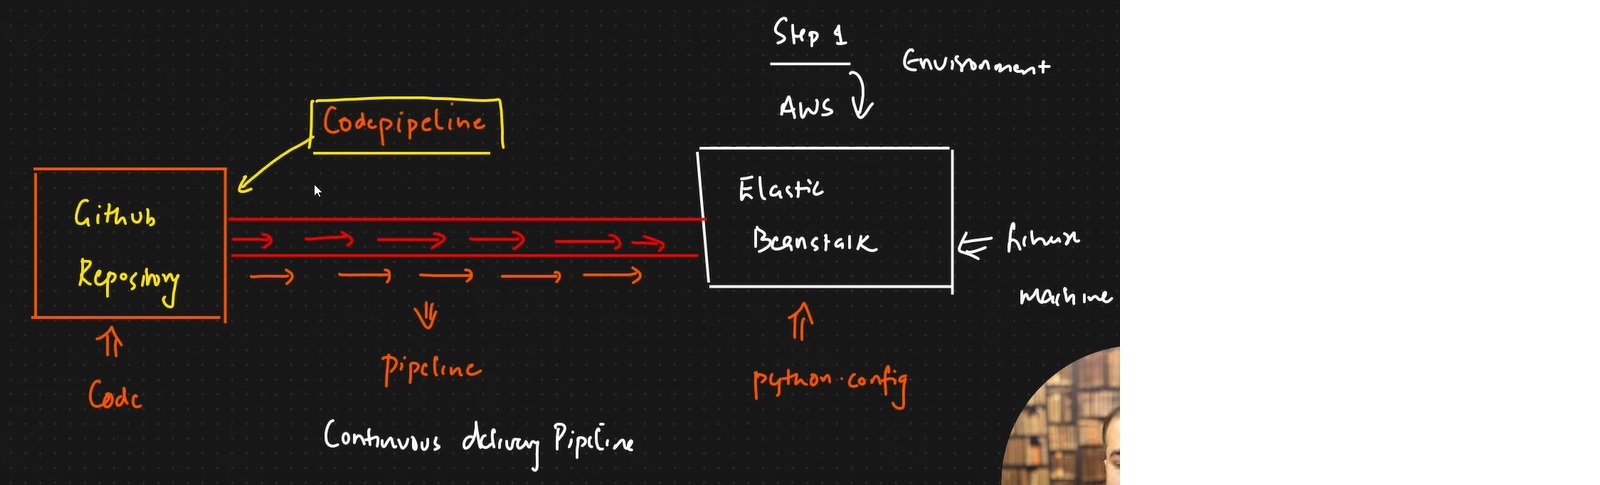 Step 1
Environment
AWS
Codepipeline
Github
Repository
Elastic
Beanstalk
Linux
machine
Code
Pipeline
python.config
Continuous delivery Pipeline